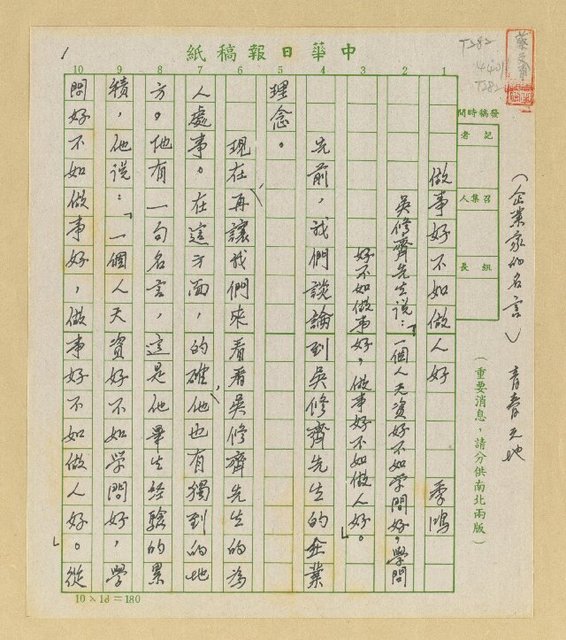 中華日報稿紙
1
T282
T282
發稿時間
記者
召集人
組長
（重要消息，請分供南北兩版）
（企業家的名言） 青春天地
1 2 3 4 5 6 7 8 9 10
做事好不如做人好 季鴻
吳修齊先生說：「一個人天資好不如學問好，學問
好不如做事好，做事好不如做人好。」
先前，我們談論到吳修齊先生的企業
理念。
現在再讓我們來看看吳修齊先生的為
人處事。在這方面，的確，他也有獨到的地
方。他有一句名言，這是他畢生經驗的累
積，他說：「一個人天資好不如學問好，學
問好不如做事好，做事好不如做人好。」從
10×18=180